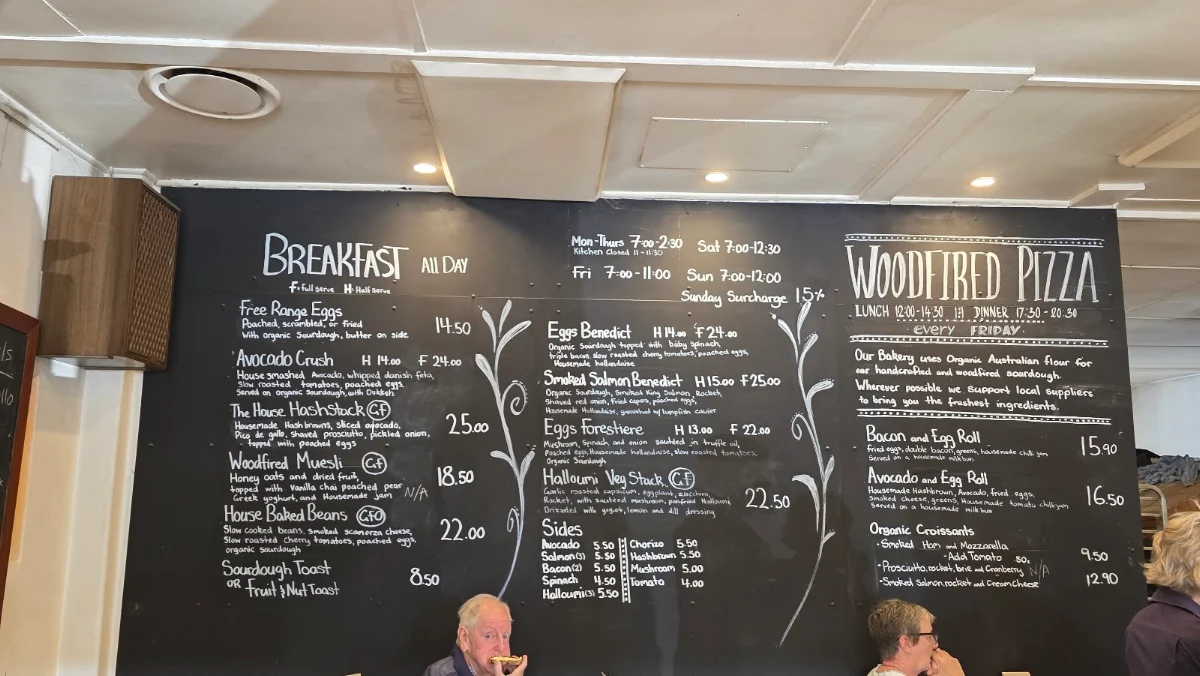 BREAKFAST ALL DAY
F: Full serve H: Half serve
Free Range Eggs 14.50
Poached, scrambled, or fried
with organic Sourdough, butter on side
Avocado Crush H 14.00 F 24.00
House smashed Avocado, whipped danish feta,
Slow roasted tomatoes, poached eggs,
Served on organic sourdough, with Dukkah
The House HashStack GF 25.00
Housemade Hash browns, sliced avocado,
Pico de gallo, shaved prosciutto, pickled onion,
topped with poached eggs
Woodfired Muesli GF 18.50
Honey oats and dried fruit,
topped with vanilla chai poached pear
Greek yoghurt, and Housemade jam N/A
House Baked Beans GFO 22.00
Slow cooked beans, smoked scamorza cheese,
Slow roasted cherry tomatoes, poached eggs,
organic sourdough
Sourdough Toast 8.50
OR Fruit & Nut Toast
Mon-Thurs 7:00-2:30 Sat 7:00-12:30
Kitchen Closed 11-11:30
Fri 7:00-11:00 Sun 7:00-12:00
Sunday Surcharge 15%
Eggs Benedict H 14.00 F 24.00
Organic Sourdough topped with baby spinach,
triple bacon, slow roasted cherry tomatoes, poached eggs,
Housemade hollandaise
Smoked Salmon Benedict H 15.00 F 25.00
Organic Sourdough, Smoked King Salmon, Rocket,
Shaved red onion, Fried capers, poached eggs,
Housemade Hollandaise, garnished w/ lumpfish caviar
Eggs Forestiere H 13.00 F 22.00
Mushroom, Spinach, and onion sautéed in truffle oil,
Poached eggs, Housemade hollandaise, slow roasted tomatoes,
Organic Sourdough
Halloumi Veg Stack GF 22.50
Garlic roasted capsicum, eggplant, zucchini,
Rocket, with sauteed mushroom, panfried Halloumi
Drizzled with yogurt, lemon and dill dressing
Sides
Avocado 5.50 Chorizo 5.50
Salmon (3) 5.50 Hashbrown 5.50
Bacon (2) 5.50 Mushroom 5.00
Spinach 4.50 Tomato 4.00
Halloumi (3) 5.50
WOODFIRED PIZZA
LUNCH 12:00-14:30 DINNER 17:30-20:30
every FRIDAY
Our Bakery uses Organic Australian flour for
our handcrafted and woodfired sourdough.
Wherever possible we support local suppliers
to bring you the freshest ingredients.
Bacon and Egg Roll 15.90
Fried eggs, double bacon, greens, housemade chilli jam
Served on a housemade milkbun
Avocado and Egg Roll 16.50
Housemade Hashbrown, Avocado, fried eggs,
Smoked cheese, greens, Housemade tomato chilli jam
Served on a housemade milkbun
Organic Croissants
• Smoked Ham and Mozzarella 9.50
- Add Tomato 80c
• Prosciutto, rocket, brie and Cranberry N/A
• Smoked Salmon, rocket and Cream Cheese 12.90